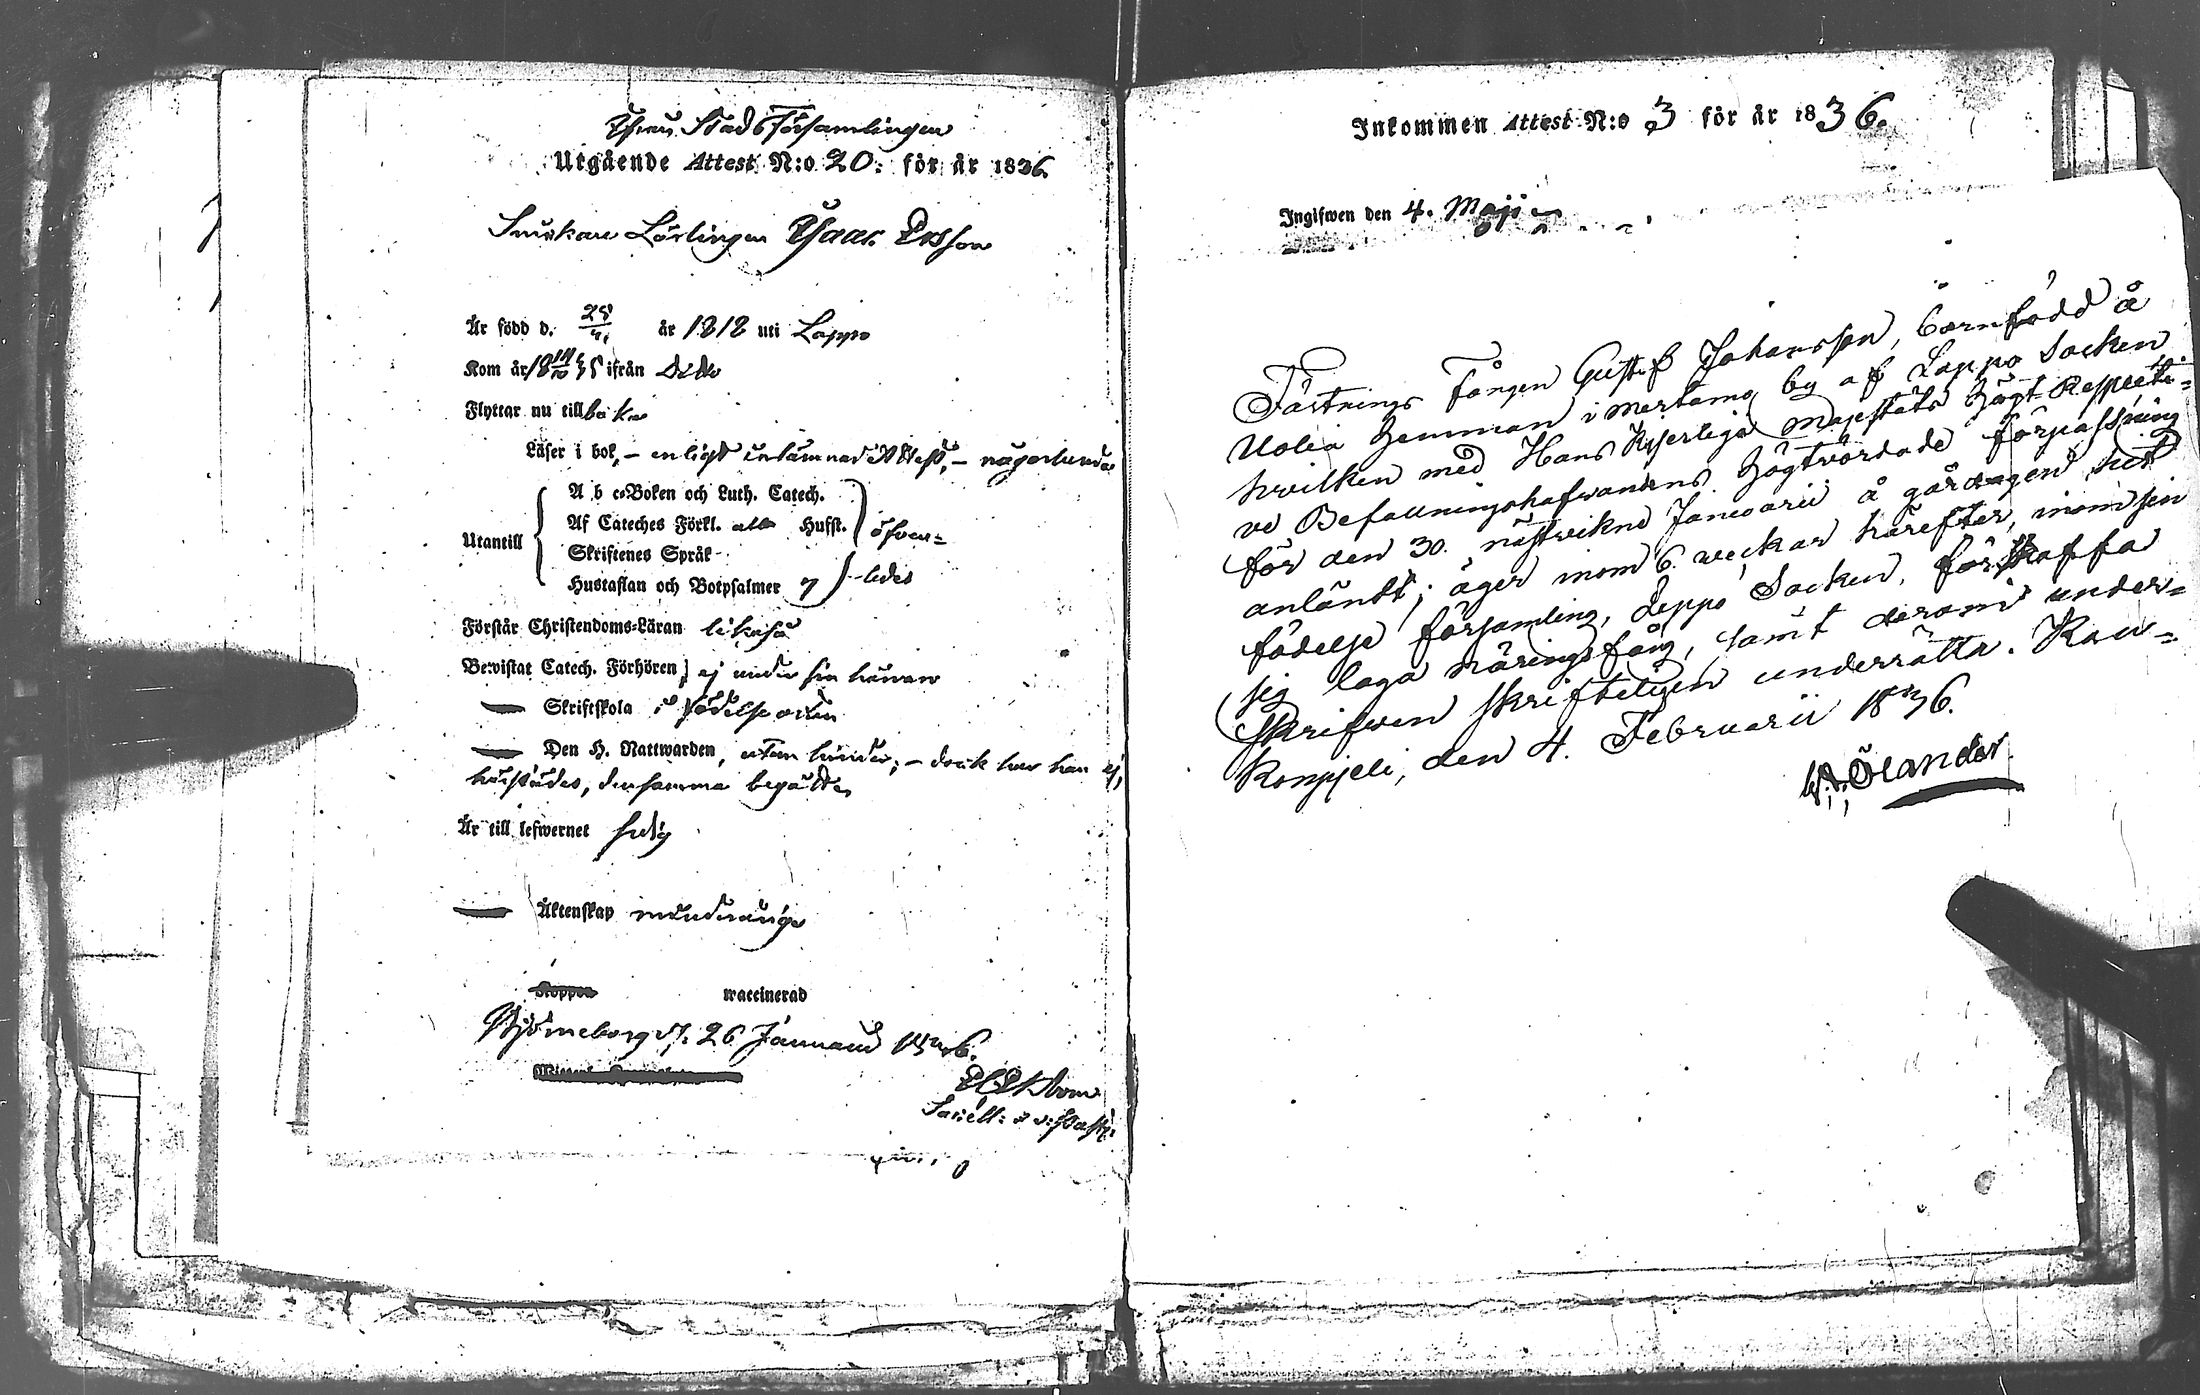 Ifrån Stads Församlingen
Utgående Attest N:o 20: för år 1836.
Snickare Lärlingen Isaac Ersson
Är född d. 25/4 år 1818 uti Lappo
Kom år 1835 ifrån Dito
Flyttar nu tillbaka
Läser i bok, – enligt inlämnad Attest, – någorlunda
Utantill
A b c-Boken och Luth. Catech.
Af Cateches Förkl. alla Hufst.
Skriftenes Språk
Hustaflan och Botpsalmer 7
öfver=
=ledes
Förstår Christendoms-Läran likaså
Bewistat Catech. Förhören, ej under sin härvaro
— Skriftskola i födelse orten
— Den H. Nattwarden, utan hinder; – dock har han ej,
härstädes, densamma begådt
Är till lefwernet sedig
— Äktenskap minderårig
Koppor waccinerad
Björneborg d. 26 Januarii 1836.
Inkommen Attest N:o 3 för år 1836.
Ingifwen den 4. Maji
Fästnings Fången Gustaf Johansson, barnfödd å
Uolia hemman i Mertamo by af Lappo Socken
hvilken med Hans Kejserliga Majestäts Högt Respecti=
ve Befallningshafwandens Högtvördade förpassning
för den 30. nästvikne Januarii å gårdagen hit
anländt; äger inom 6. veckor härefter, inom sin
födelse församling, Lappo Socken, förskaffa
sig laga näringsfång, samt derom under=
skrifwen skrifteligen underrätta. Kau=
konpjeli, den 4. Februarii 1836.
Ölander.